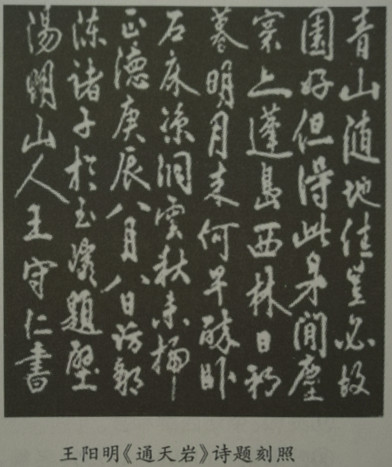 青山隨地佳豈必故
園好但得此身閒塵
寰亦蓬島西林日初
暮明月来何早醉卧
石床凉洞雲秋未掃
正德庚辰八月八日訪鄒
陳諸子於玉巖題壁
陽明山人王守仁書
王阳明《通天岩》诗题刻照